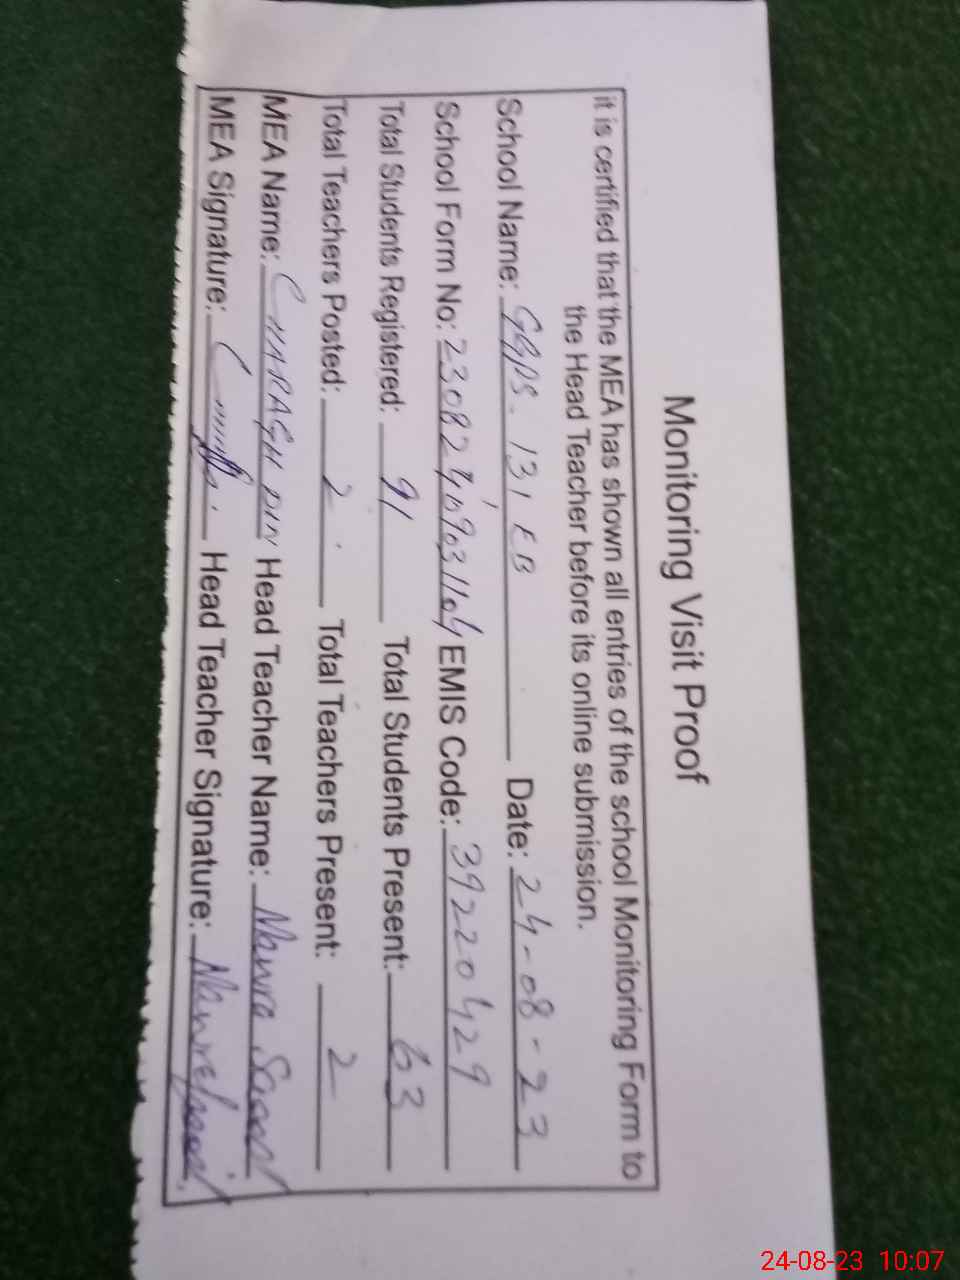 Monitoring Visit Proof
it is certified that the MEA has shown all entries of the school Monitoring Form to
the Head Teacher before its online submission.
School Name: GGPS. 131 EB Date: 24-08-23
School Form No: EMIS Code: 39220429
Total Students Registered: 91 Total Students Present: 63
Total Teachers Posted: 2 Total Teachers Present: 2
MEA Name: CHARAGH DIN Head Teacher Name:
MEA Signature: Head Teacher Signature:
24-08-23 10:07